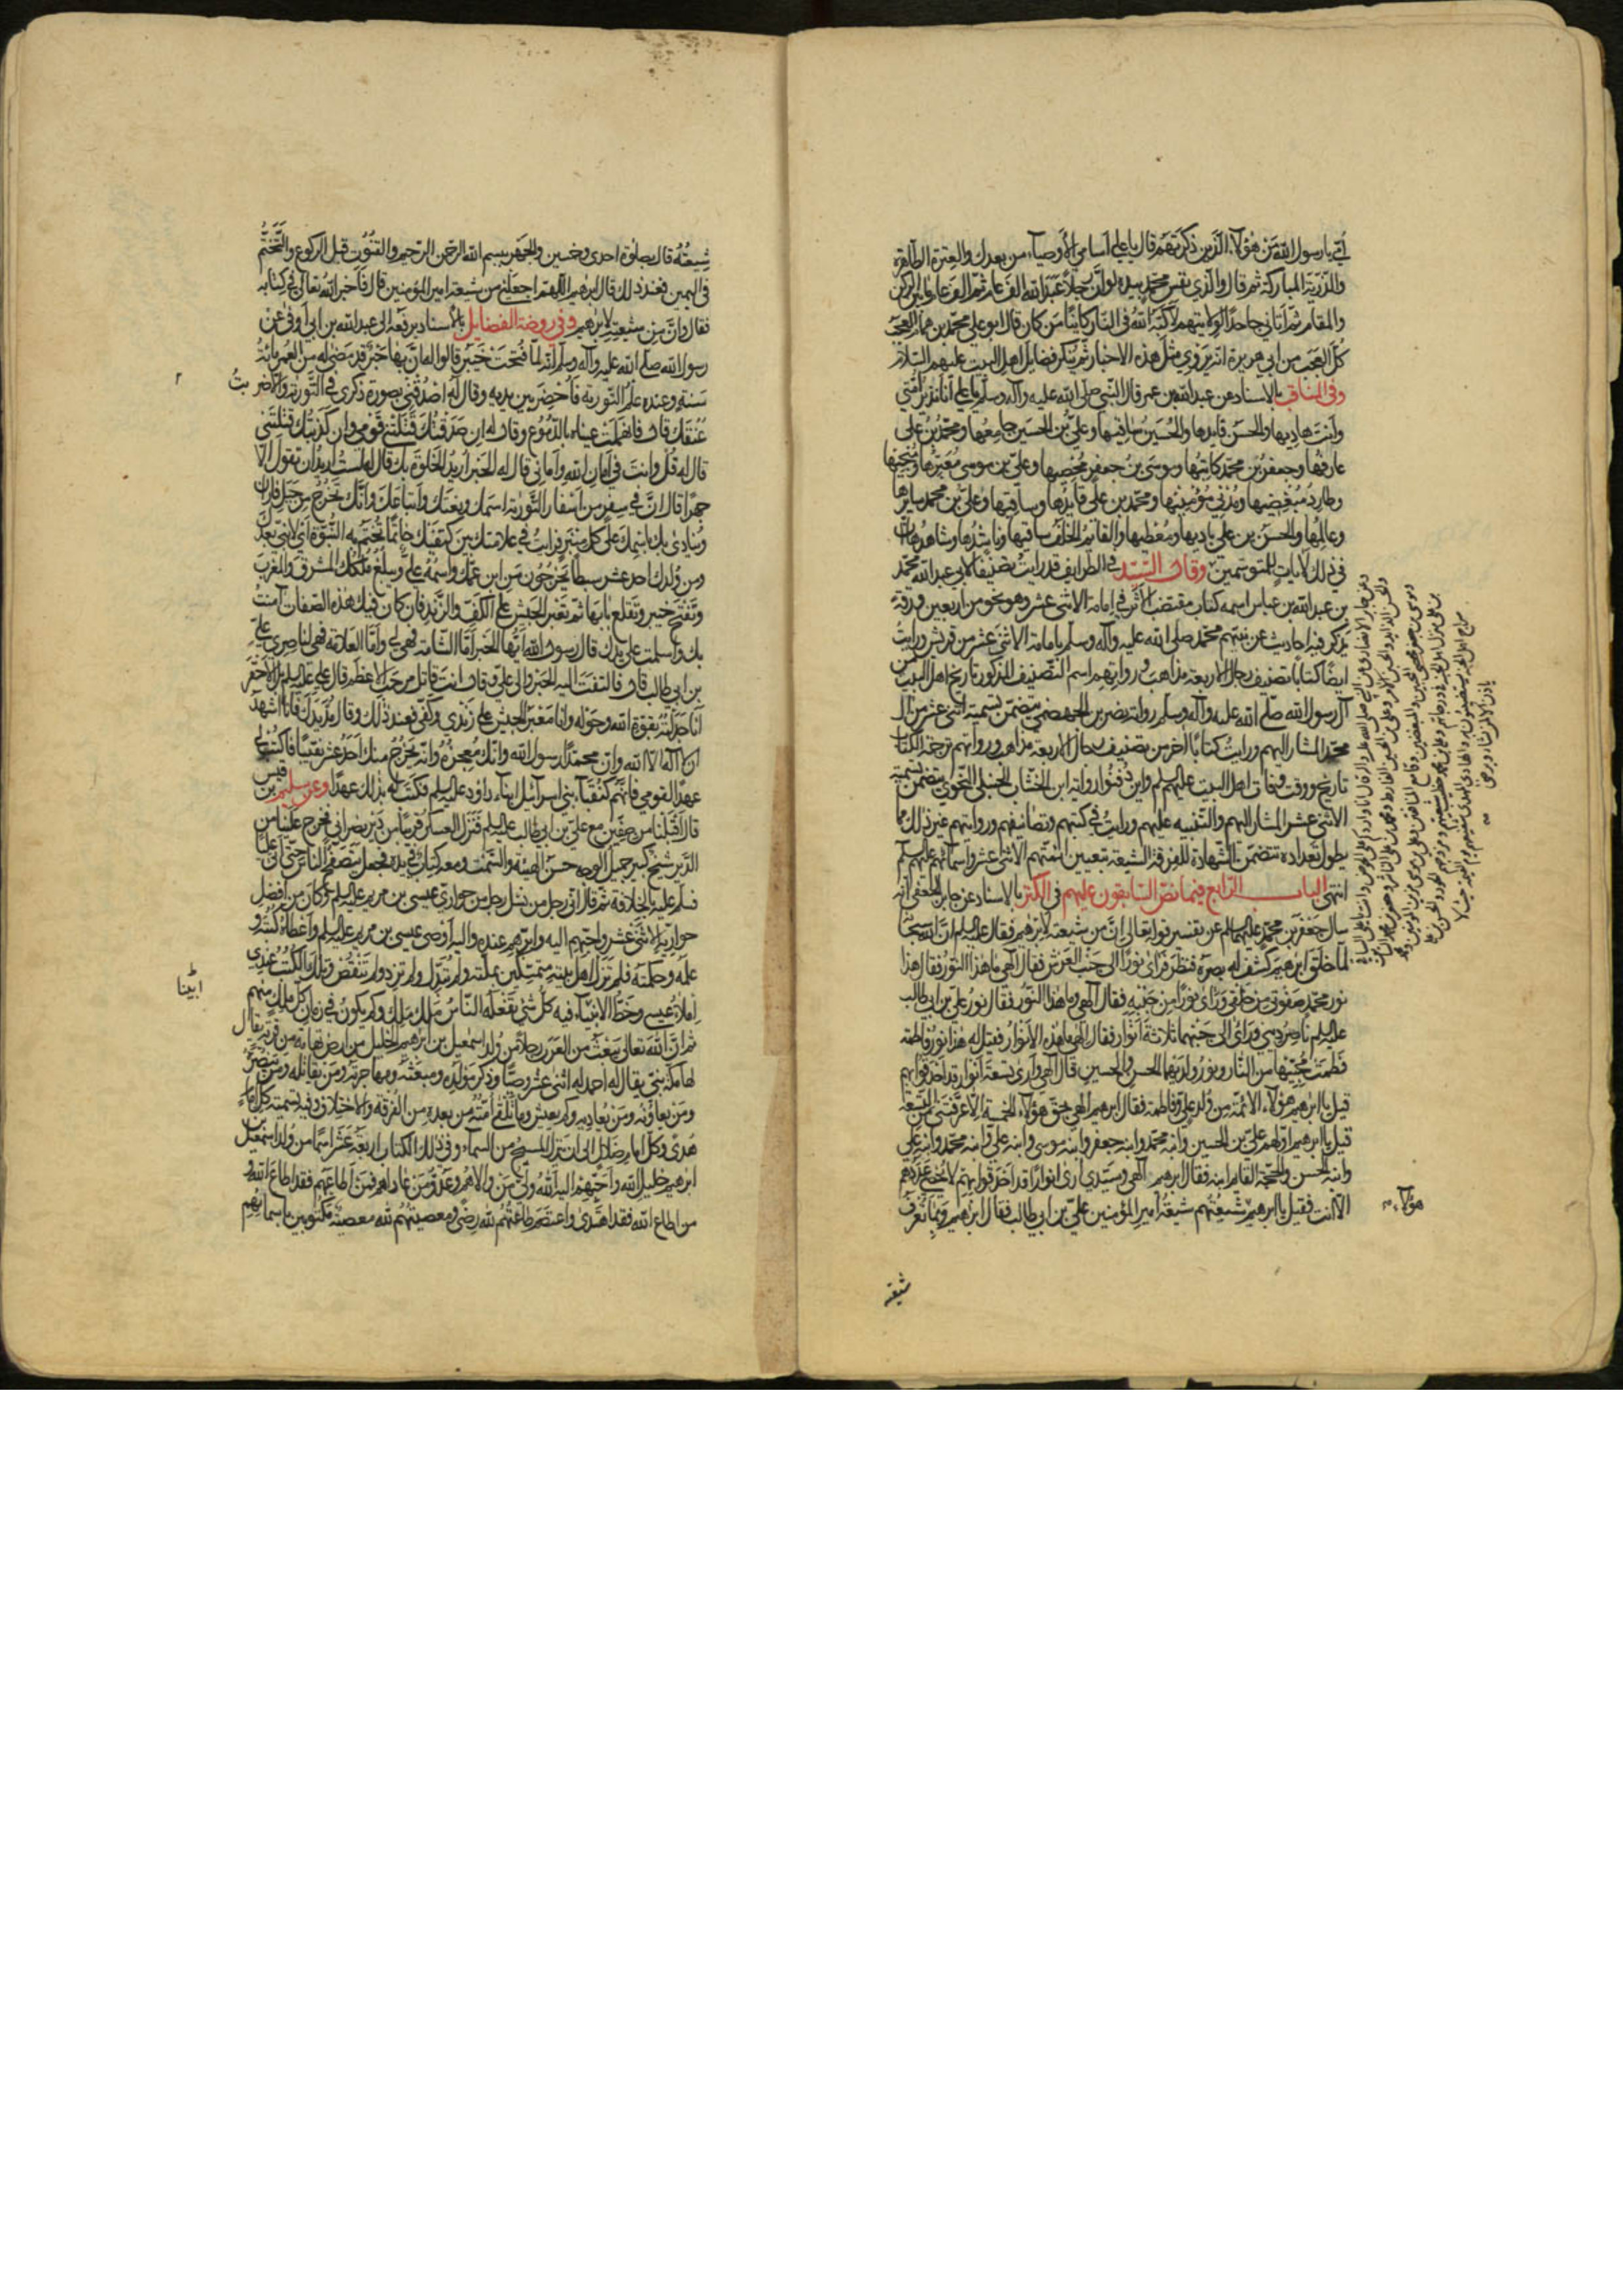 لي يا رسول الله من هؤلاء الذين ذكرتهم قال يا علي أسامي الأوصياء من بعدك والعترة الطاهرة
والذرية المباركة ثم قال والذي نفس محمد بيده لو أن رجلا عبد الله ألف عام ثم ألف عام ما بين الركن
والمقام ثم أتاني جاحدا لولايتهم لأكبه الله في النار كائنا من كان قال ابو علي محمد بن همام العجب
كل العجب من ابي هريرة انه يروي مثل هذه الاخبار ثم ينكر فضايل اهل البيت عليهم السلام
وفي المناقب بالاسناد عن عبد الله بن عمر قال النبي صلى الله عليه وآله وسلم يا علي أنا نذير أمتي
وأنت هاديها والحسن قايدها والحسين سايقها وعلي بن الحسين جامعها ومحمد بن علي
عارفها وجعفر بن محمد كاتبها وموسى بن جعفر محصيها وعلي بن موسى معبرها ومنجيها
وطارد مبغضيها ومدني مؤمنيها ومحمد بن علي قايدها وسايقها وعلي بن محمد سايرها
وعالمها والحسن بن علي ناديها ومعطيها والقائم الخلف ساقيها وناشدها وشاهدها إن
في ذلك لآيات للمتوسمين وقال السيد في الطرايف قد رأيت تصنيفا لابي عبد الله محمد
بن عبد الله بن عباس اسمه كتاب مقتضب الأثر في إمامة الاثنى عشر وهو نحو من اربعين ورقة
يذكر فيه احاديث عن نبيهم محمد صلى الله عليه وآله وسلم بامامة الاثنى عشر من قريش ورأيت
ايضا كتابا تصنيف رجال الاربعة مذاهب ورواتهم اسم التصنيف المذكور تاريخ اهل البيت من
آل رسول الله صلى الله عليه وآله وسلم رواية نصر بن الجهضمي يتضمن تسمية اثنى عشر من آل
محمد المشار اليهم ورأيت كتابا آخر من تصنيف رجال الاربعة مذاهب ورواتهم ترجمة الكتاب
تاريخ مواليد ووفاة اهل البيت عليهم السلم واين دفنوا رواية ابن الخشاب الحنبلي النحوي يتضمن تسمية
الاثنى عشر المشار اليهم والتنبيه عليهم ورأيت في كتبهم وتصانيفهم ورواياتهم غير ذلك مما
يطول تعداده تتضمن الشهادة للفرقة الشيعة بتعيين ائمتهم الاثنى عشر وأسمائهم عليهم السلم
انتهى الباب الرابع فيما نص السابقون عليهم في الكنز بالاسناد عن جابر الجعفي انه
سأل جعفر بن محمد عليهما السلم عن تفسير قوله تعالى إن من شيعته لإبرهيم فقال عليه السلم ان الله سبحانه
لما خلق ابرهيم كشف له بصره فنظر فرأى نورا الى جنب العرش فقال الهي ما هذا النور فقال هذا
نور محمد صفوتي من خلقي ورأى نورا من جنبه فقال الهي وما هذا النور فقال نور علي بن ابي طالب
عليه السلم ناصر ديني ورأى الى جنبهما ثلاثة أنوار فقال الهي ما هذه الأنوار فقيل له هذا نور فاطمة
فطمت محبيها من النار ونور ولديها الحسن والحسين قال الهي وأرى تسعة أنوار قد أحدقوا بهم
قيل يا ابرهيم هؤلاء الأئمة من ولد علي وفاطمة فقال ابرهيم الهي بحق هؤلاء الخمسة الا عرفتني من التسعة
قيل يا ابرهيم اولهم علي بن الحسين وابنه محمد وابنه جعفر وابنه موسى وابنه علي وابنه محمد وابنه علي
وابنه الحسن والحجة القايم ابنه فقال ابرهيم الهي وسيدي أرى انوارا قد احدقوا بهم لا يحصي عددهم
الا أنت فقيل يا ابرهيم شيعتهم شيعة أمير المؤمنين علي بن ابي طالب فقال ابرهيم وبما تعرف
هؤلاء
شيعته
شيعته قال بصلوة احدى وخمسين والجهر ببسم الله الرحمن الرحيم والقنوت قبل الركوع والتختم
في اليمين فعند ذلك قال ابرهيم اللهم اجعلني من شيعة امير المؤمنين قال فأخبر الله تعالى في كتابه
فقال وان من شيعته لإبرهيم وفي روضة الفضايل بالاسناد يرفعه الى عبد الله بن ابي أوفى عن
رسول الله صلى الله عليه وآله وسلم أنه لما فتحت خيبر قالوا له ان بها حبر قد مضى له من العمر مائة
سنة وعنده علم التورية فأحضر بين يديه وقال له اصدقني بصورة ذكري في التورية والا ضربت
عنقك قال فانهملت عيناه بالدموع وقال له إن صدقتك قتلتني قومي وإن كذبتك قتلتني
قال له قل وانت في أمان الله وأماني قال له الحبر أريد الخلوة بك قال له لست أريد أن تقول الا
جهرا قال ان في سفر من أسفار التورية اسمك ونعتك وأتباعك وانك تخرج من جبل فاران
وينادى بك باسمك على كل منبر فرأيت في علامتك بين كتفيك خاتما تختم به النبوة أي لا نبي بعدك
ومن ولدك احد عشر سبطا يخرجون من ابن عمك واسمه علي ويبلغ ملكك المشرق والمغرب
وتفتح خيبر وتقلع بابها ثم تعبر الجيش على الكف والزند فان كان فيك هذه الصفات آمنت
بك وأسلمت على يدك قال رسول الله أيها الحبر أما الشامة فهي لي وأما العلامة فهي لناصري علي
بن ابي طالب قال فالتفت اليه الحبر والى علي وقال انت قاتل مرحب الاعظم قال علي عليه السلم بل الاحقر
أنا جدلته بقوة الله وحوله وأنا معبر الجيش على زندي وكفي فعند ذلك قال مد يدك فأنا أشهد
أن لا اله الا الله وأن محمدا رسول الله وأنك معجزه وأنه يخرج منك أحد عشر نقيبا فاكتب لي
عهدا لقومي فإنهم كنقباء بني اسرائيل ابناء داود عليه السلم فكتب له بذلك عهدا وعن سليم بن قيس
قال أقبلنا من صفين مع علي بن ابي طالب عليه السلم فنزل العسكر قريبا من دير نصراني فخرج علينا من
الدير شيخ كبير جميل الوجه حسن الهيئة والسمت ومعه كتاب في يده فجعل يتصفح الناس حتى أتى عليا
فسلم عليه بالخلافة ثم قال اني رجل من نسل رجل من حواري عيسى بن مريم عليه السلم وكان من أفضل
حواريه الاثنى عشر وأحبهم اليه وأبرهم عنده واليه أوصى عيسى بن مريم عليه السلم وأعطاه كتبه و
علمه وحكمته فلم تزل اهل بيته متمسكين بملته ولم تبدل ولم تزد ولم تنقص وتلك الكتب عندي
إملاء عيسى وخط الأنبياء فيه كل شيء تفعله الناس ملك ملك وكم يكون في زمان كل ملك منهم
ثم ان الله تعالى يبعث من العرب رجلا من ولد اسمعيل بن ابرهيم الخليل من ارض تهامة من قرية يقال
لها مكة نبي يقال له احمد له اثنى عشر وصيا وذكر مولده ومبعثه ومهاجرته ومن يقاتله ومن ينصره
ومن يعاونه ومن يعاديه وكم يعيش وما تلقى أمته من بعده من الفرقة والاختلاف وفيه تسمية كل إمام
هدى وكل إمام ضلال الى ان ينزل المسيح من السماء وفي ذلك الكتاب اربعة عشر اسما من ولد اسمعيل بن
ابرهيم خليل الله وأحبهم اليه الله ولي من والاهم وعدو من عاداهم فمن أطاعهم فقد اطاع الله و
من اطاع الله فقد اهتدى واعتصم طاعتهم لله رضى ومعصيتهم لله معصية مكتوبين بأسمائهم
ايضا